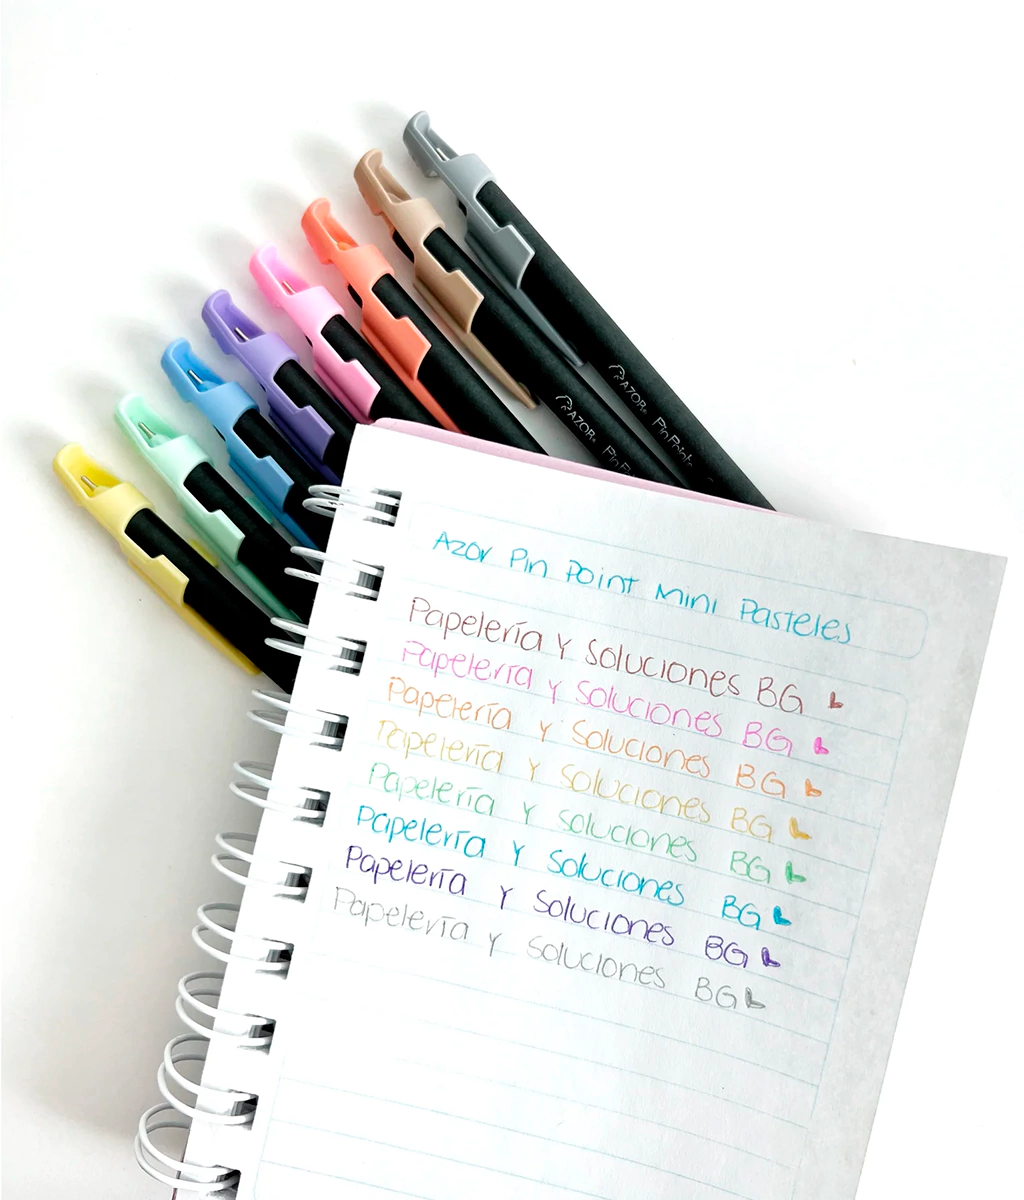 AZOR® Pin Point
AZOR® Pin
Azor Pin Point Mini Pasteles
Papelería y Soluciones BG
Papelería y Soluciones BG
Papelería y Soluciones BG
Papelería y Soluciones BG
Papelería y Soluciones BG
Papelería y Soluciones BG
Papelería y Soluciones BG
Papelería y Soluciones BG